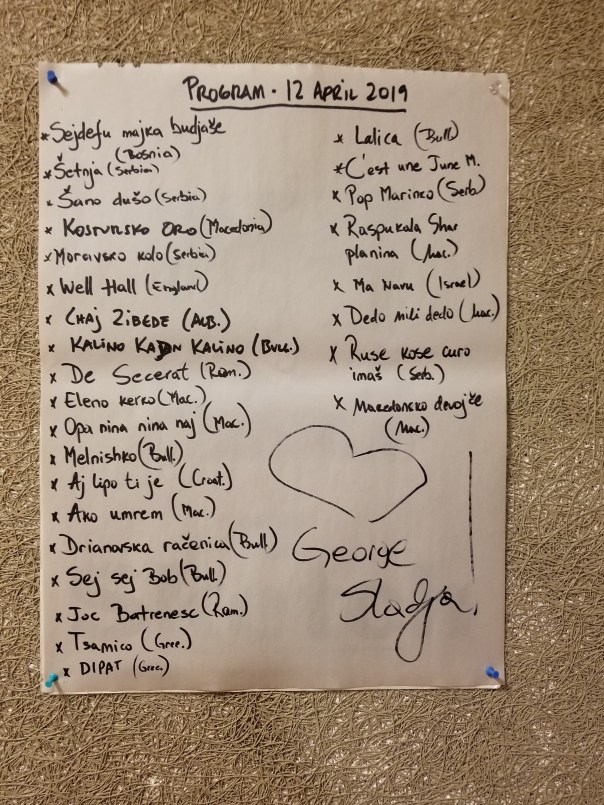 PROGRAM · 12 APRIL 2019
* Sejdefu majka budjaše
(Bosnia)
* Šetnja (Serbian)
* Šano dušo (Serbia)
* Kostursko oro (Macedonia)
x Moravsko kolo (Serbia)
x Well Hall (England)
x CHAJ ZIBEDE (ALB.)
x KALINO KADN KALINO (BULL.)
x De Secerat (Rom.)
x Eleno kerko (Mac.)
x Opa nina nina naj (Mac.)
x Melnishko (Bull.)
x Aj lipo ti je (Croat.)
x Ako umrem (Mac.)
x Drianovska račenica (Bull)
x Sej sej Bob (Bull.)
x Joc Batrenesc (Rom.)
x Tsamico (Gree.)
x DIPAT (Gree.)
* Lalica (Bull)
* C'est une June M.
x Pop Marinko (Serb)
x Raspukala Shar
planina (Mac.)
x Ma Navu (Israel)
x Dedo mili dedo (Mac.)
x Ruse kose curo
imaš (Serb.)
x Makedonsko devojče
(Mac.)
George
Sladja